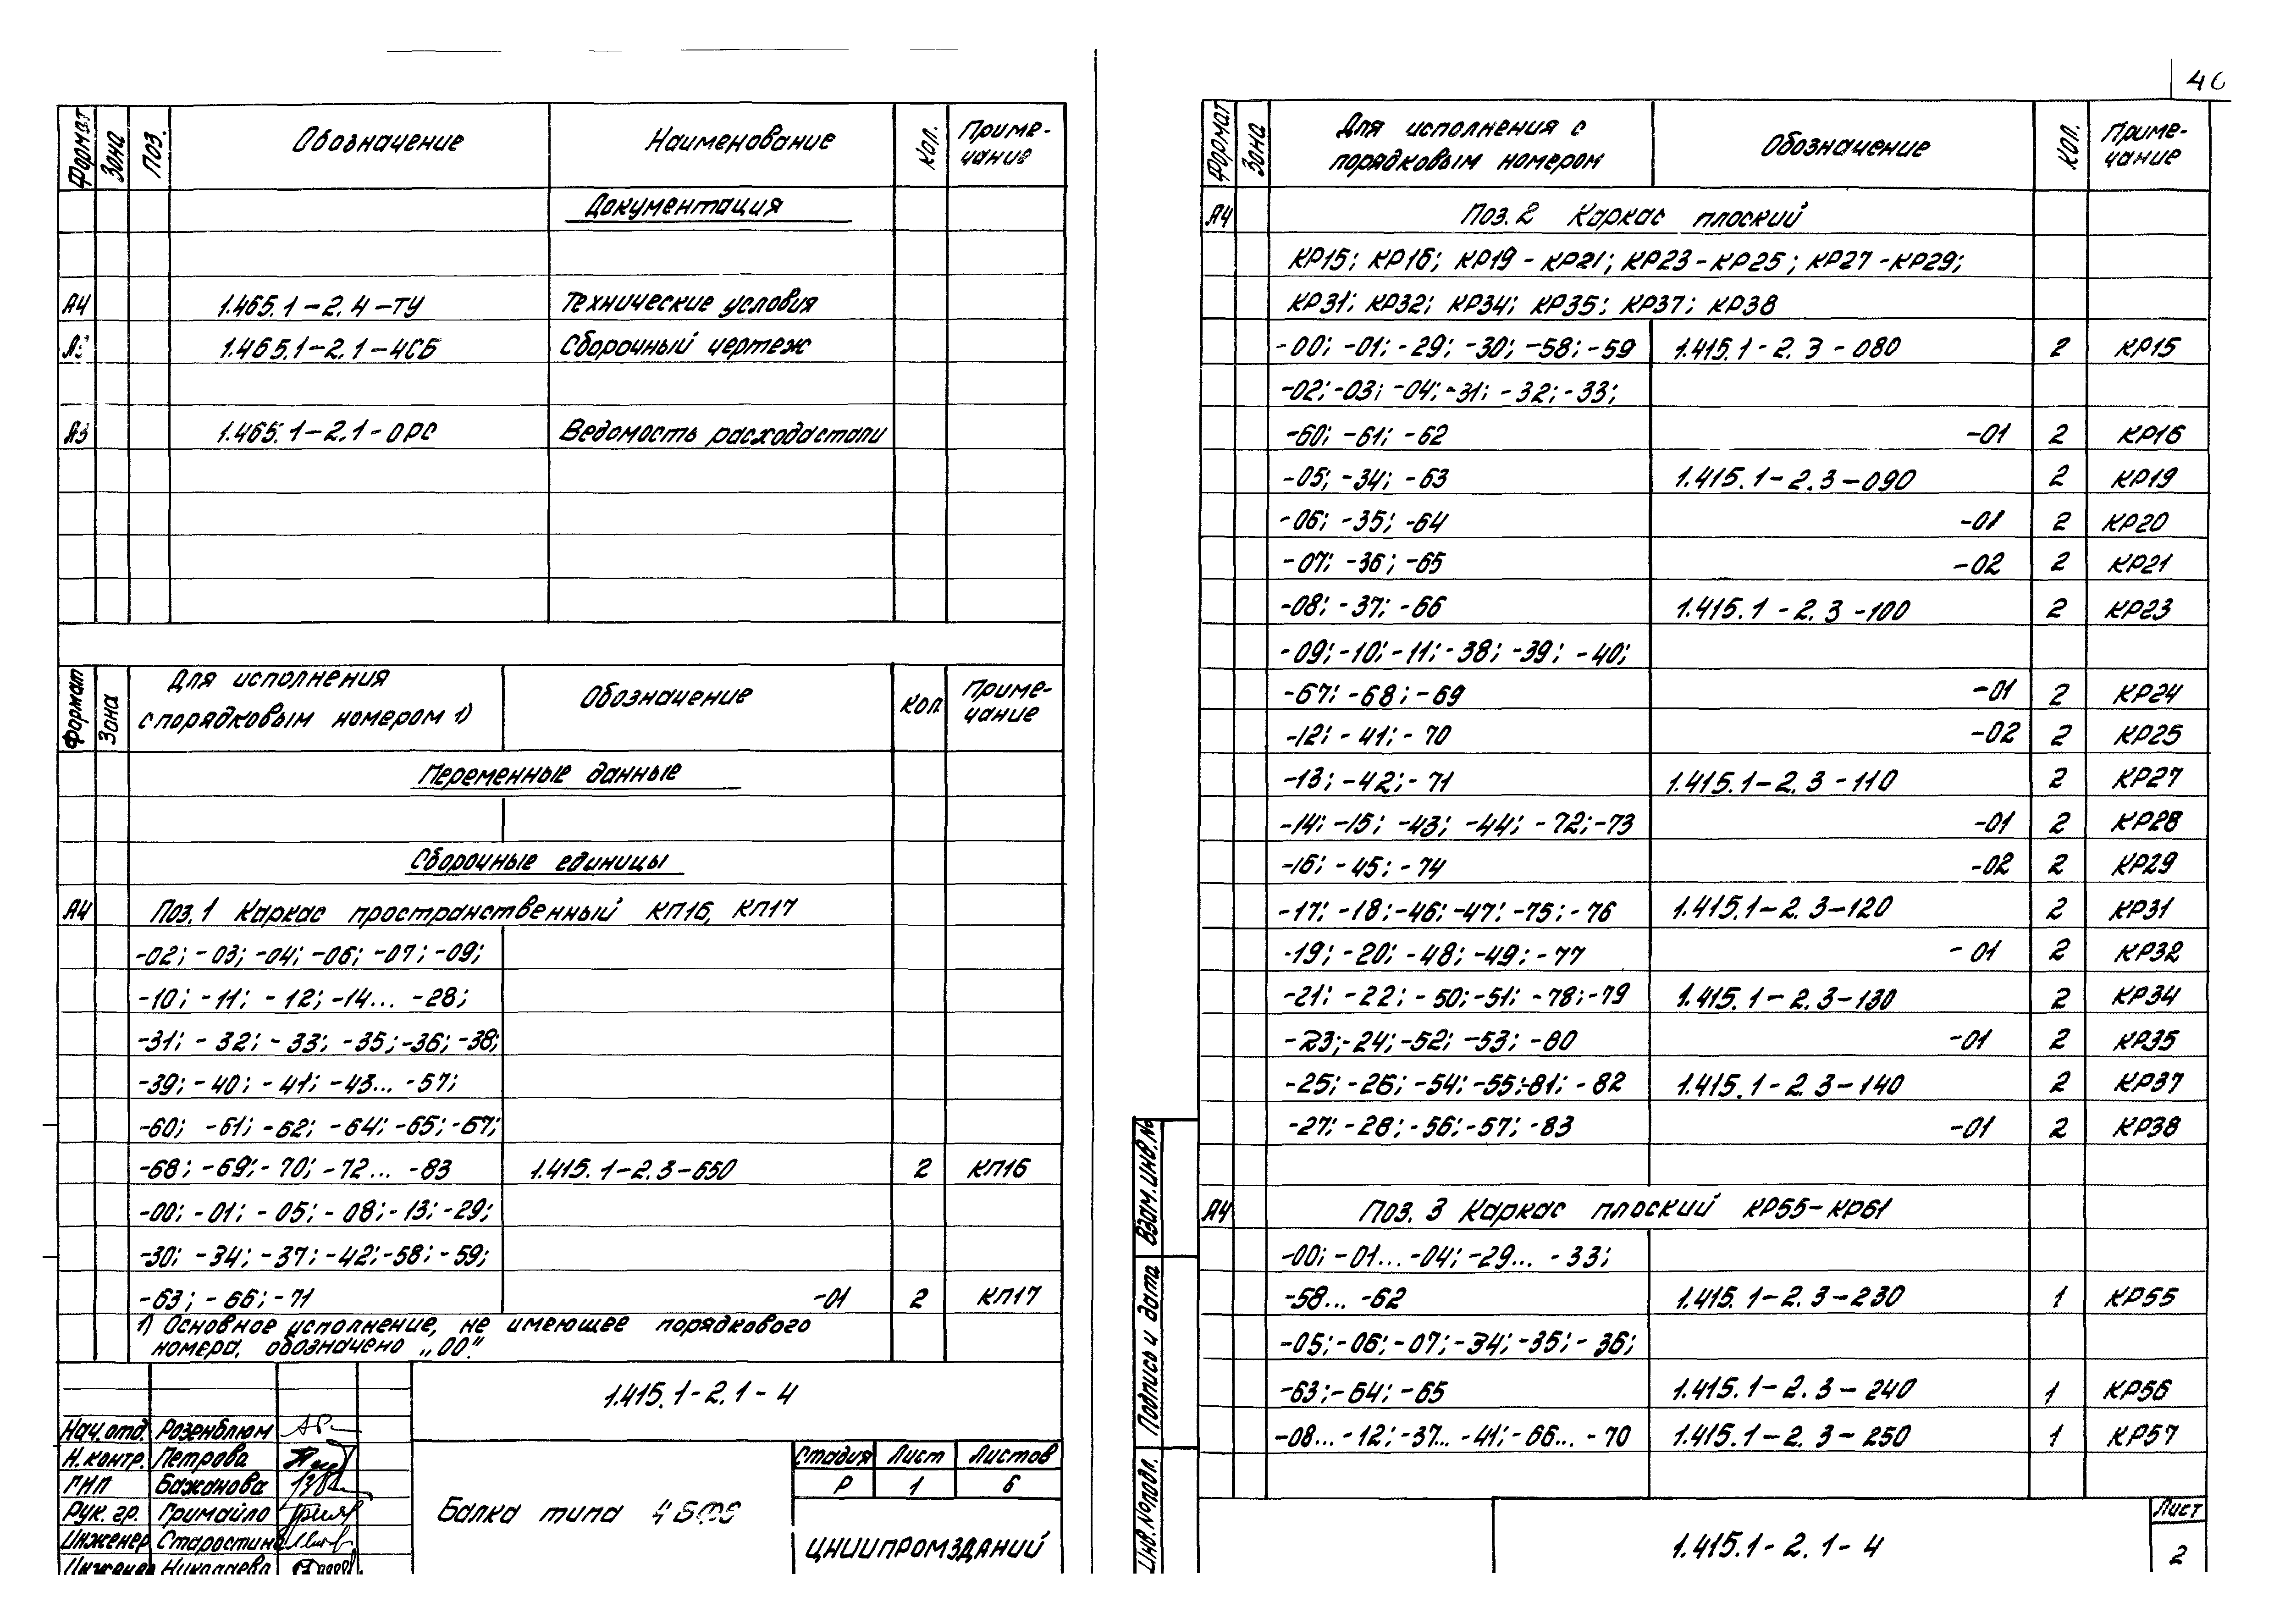 Формат Зона Поз. Обозначение Наименование Кол. Приме-
чание
Документация
А4 1.465.1-2.4-ТУ Технические условия
1.465.1-2.1-4СБ Сборочный чертеж
А3 1.465.1-2.1-0РС Ведомость расхода стали
Формат Зона Для исполнения Обозначение Кол Приме-
с порядковым номером 1) чание
Переменные данные
Сборочные единицы
А4 Поз.1 Каркас пространственный КП16, КП17
-02; -03; -04; -06; -07; -09;
-10; -11; -12; -14... -28;
-31; -32; -33; -35; -36; -38;
-39; -40; -41; -43... -57;
-60; -61; -62; -64; -65; -67;
-68; -69; -70; -72... -83 1.415.1-2.3-650 2 КП16
-00; -01; -05; -08; -13; -29;
-30; -34; -37; -42; -58; -59;
-63; -66; -71 -01 2 КП17
1) Основное исполнение, не имеющее порядкового
номера, обозначено „00."
1.415.1-2.1-4
Нач.отд. Розенблюм
Н.контр. Петрова
ГИП Бажанова
Рук. гр. Гримайло
Инженер Старостина
Инженер Николаева
Балка типа
Стадия Лист Листов
Р 1 6
ЦНИИПРОМЗДАНИЙ
Формат Зона Для исполнения с Обозначение Кол. Приме-
порядковым номером чание
А4 Поз.2 Каркас плоский
КР15; КР16; КР19-КР21; КР23-КР25; КР27-КР29;
КР31; КР32; КР34; КР35; КР37; КР38
-00; -01; -29; -30; -58; -59 1.415.1-2.3-080 2 КР15
-02; -03; -04; -31; -32; -33;
-60; -61; -62 -01 2 КР16
-05; -34; -63 1.415.1-2.3-090 2 КР19
-06; -35; -64 -01 2 КР20
-07; -36; -65 -02 2 КР21
-08; -37; -66 1.415.1-2.3-100 2 КР23
-09; -10; -11; -38; -39; -40;
-67; -68; -69 -01 2 КР24
-12; -41; -70 -02 2 КР25
-13; -42; -71 1.415.1-2.3-110 2 КР27
-14; -15; -43; -44; -72; -73 -01 2 КР28
-16; -45; -74 -02 2 КР29
-17; -18; -46; -47; -75; -76 1.415.1-2.3-120 2 КР31
-19; -20; -48; -49; -77 -01 2 КР32
-21; -22; -50; -51; -78; -79 1.415.1-2.3-130 2 КР34
-23; -24; -52; -53; -80 -01 2 КР35
-25; -26; -54; -55; -81; -82 1.415.1-2.3-140 2 КР37
-27; -28; -56; -57; -83 -01 2 КР38
А4 Поз. 3 Каркас плоский КР55-КР61
-00; -01... -04; -29... -33;
-58... -62 1.415.1-2.3-230 1 КР55
-05; -06; -07; -34; -35; -36;
-63; -64; -65 1.415.1-2.3-240 1 КР56
-08... -12; -37... -41; -66... -70 1.415.1-2.3-250 1 КР57
Взам.инв.№
Подпись и дата
Инв.№подл.
1.415.1-2.1-4
Лист
2